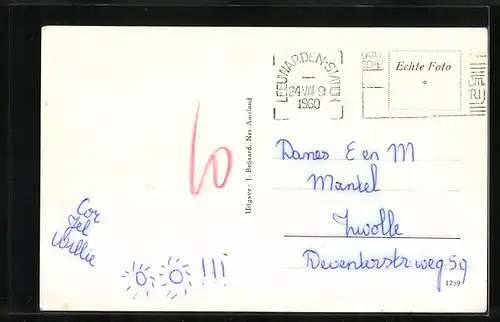 LEEUWARDEN-STATION
24 VIII 9
1960
Echte Foto
60
Uitgave: J. Beijaard. Nes Ameland
Dames E en M
Mantel
Zwolle
Deventerstr.weg 59
1259
Cor
Jel
Willie
!!!